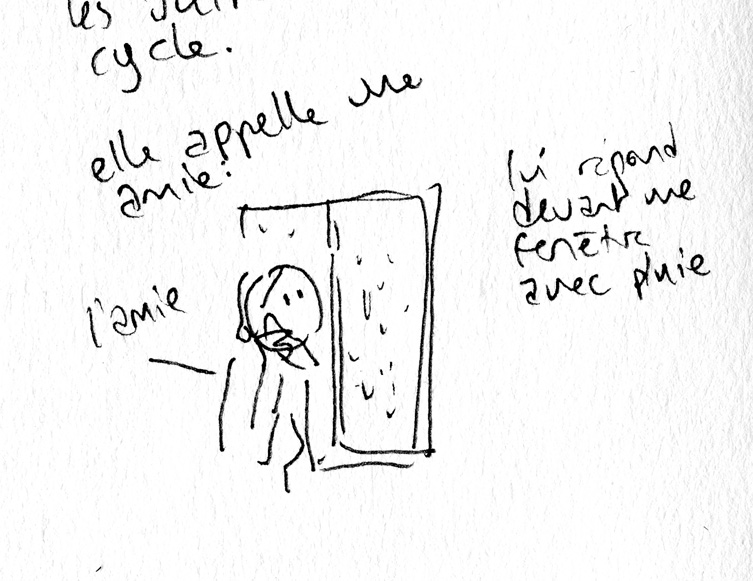 les
cycle.
elle appelle une
amie:
lui répond
devant une
fenêtre
avec pluie
l'amie